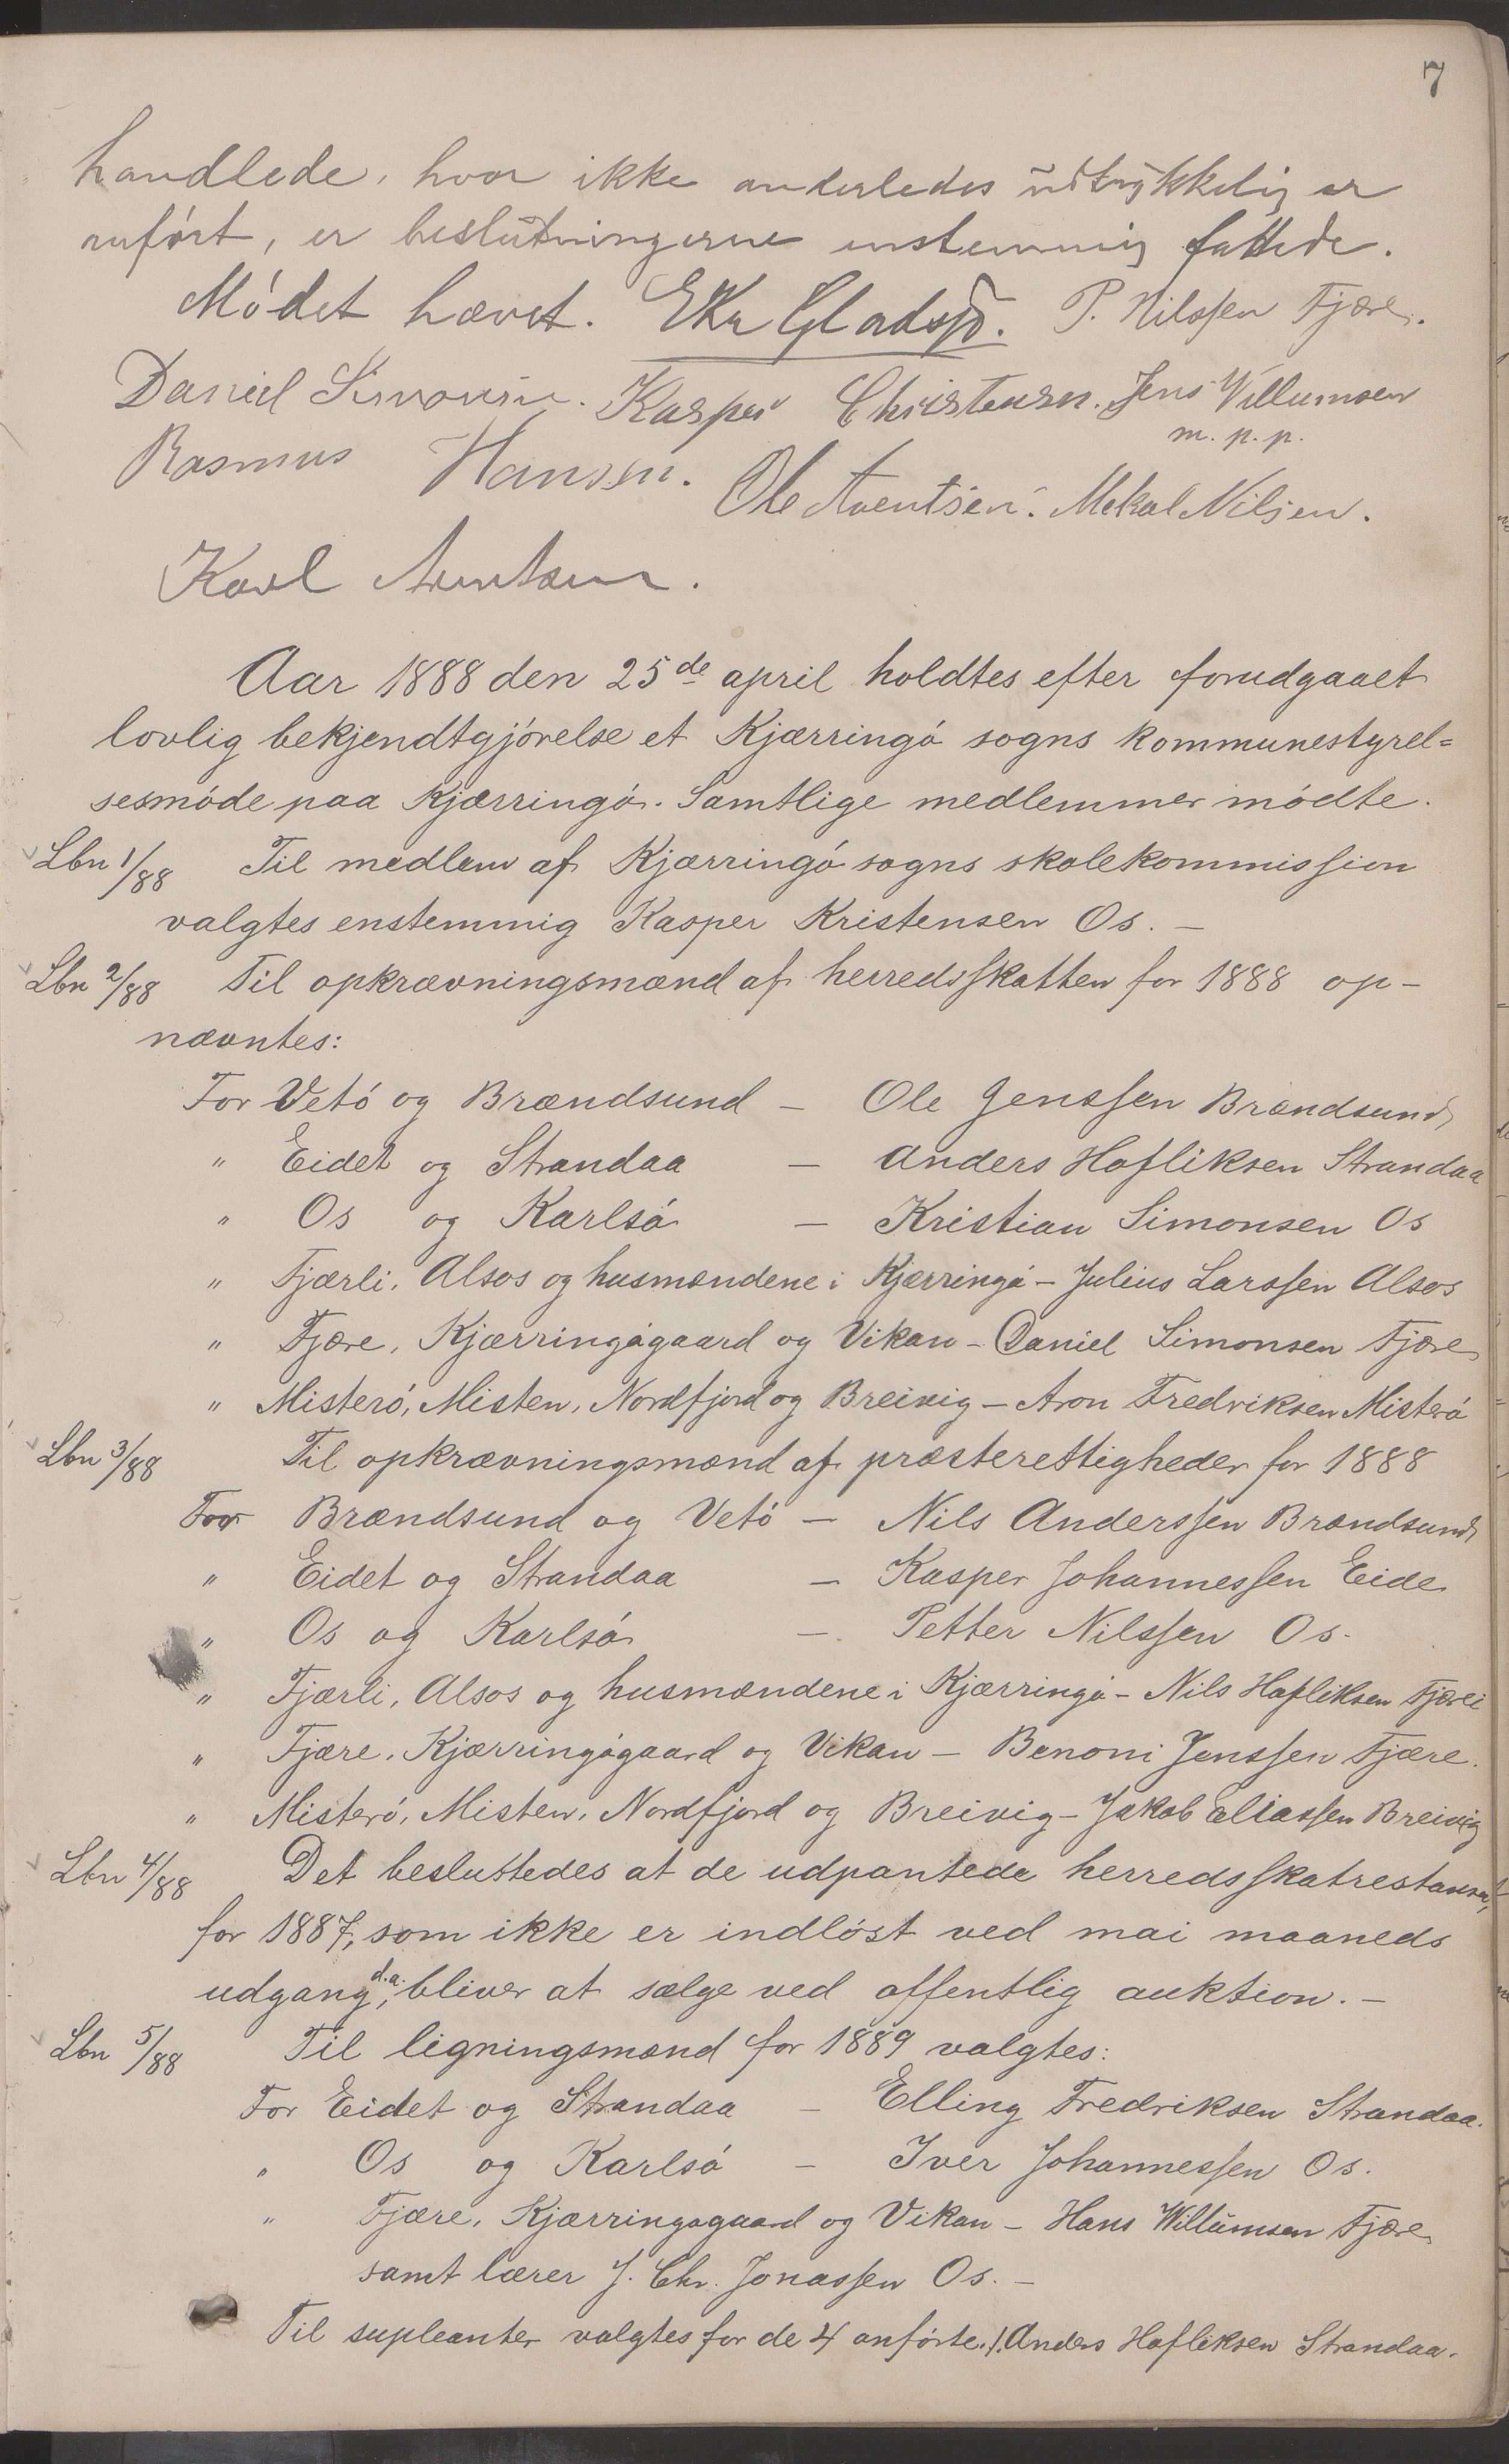 7
handlede, hvor ikke anderledes udtrykkelig er
anført, er beslutningerne enstemmig fattede.
Mødet hævet. EKr Gladsø. P. Nilssen Fjære.
Daniel Simonsen. Kasper Christensen. Jens Willumsen
m. p. p.
Rasmus Hansen. Ole Arentsen. Mekal Nilsen.
Karl Arentsen.
Aar 1888 den 25de april holdtes efter forudgaaet
lovlig bekjendtgjørelse et Kjærringø sogns kommunestyrel=
sesmøde paa Kjærringø. Samtlige medlemmer mødte.
Lbn 1/88 Til medlem af Kjærringø sogns skolekommission
valgtes enstemmig Kasper Kristensen Os. —
Lbn 2/88 Til opkrævningsmænd af herredsskatten for 1888 op-
nævntes:
For Vetø og Brændsund — Ole Jenssen Brændsund
" Eidet og Strandaa — Anders Hafliksen Strandaa
" Os og Karlsø — Kristian Simonsen Os
" Fjærli, Alsos og husmændene i Kjærringø — Julius Larssen Alsos
" Fjære, Kjærringøgaard og Vikan — Daniel Simonsen Fjære
" Misterø, Misten, Nordfjord og Breivig — Aron Fredriksen Misterø
Lbn 3/88 Til opkrævningsmænd af præsterettigheder for 1888
For Brændsund og Vetø — Nils Anderssen Brændsund
" Eidet og Strandaa — Kasper Johannessen Eide
" Os og Karlsø — Petter Nilssen Os.
" Fjærli, Alsos og husmændene i Kjærringø — Nils Hafliksen Fjærli
" Fjære, Kjærringøgaard og Vikan — Benoni Jenssen Fjære.
" Misterø, Misten, Nordfjord og Breivig — Jakob Eliassen Breivig
Lbn 4/88 Det besluttedes at de udpantede herredsskatrestanser,
for 1887, som ikke er indløst ved mai maaneds
udgang d.a., bliver at sælge ved offentlig auktion. —
Lbn 5/88 Til ligningsmænd for 1889 valgtes:
For Eidet og Strandaa — Elling Fredriksen Strandaa.
" Os og Karlsø — Iver Johannessen Os.
" Fjære, Kjærringøgaard og Vikan — Hans Willumsen Fjære
samt lærer J. Chr. Jonassen Os. —
Til supleanter valgtes for de 4 anførte. 1. Anders Hafliksen Strandaa.